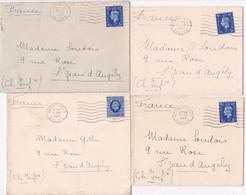 France
Madame Loudois
9 rue Rose
St Jean d'Angély
(Ch. Inf.re)
France
Madame O. Loudois
9 rue Rose
St Jean d'Angély
(Ch. Inf.re)
France
Madame
9 rue Rose
St Jean d'Angély
(Ch. Inf.re)
France
Madame Loudois
9 rue Rose
St Jean d'Angély
(Ch. Inf.re)